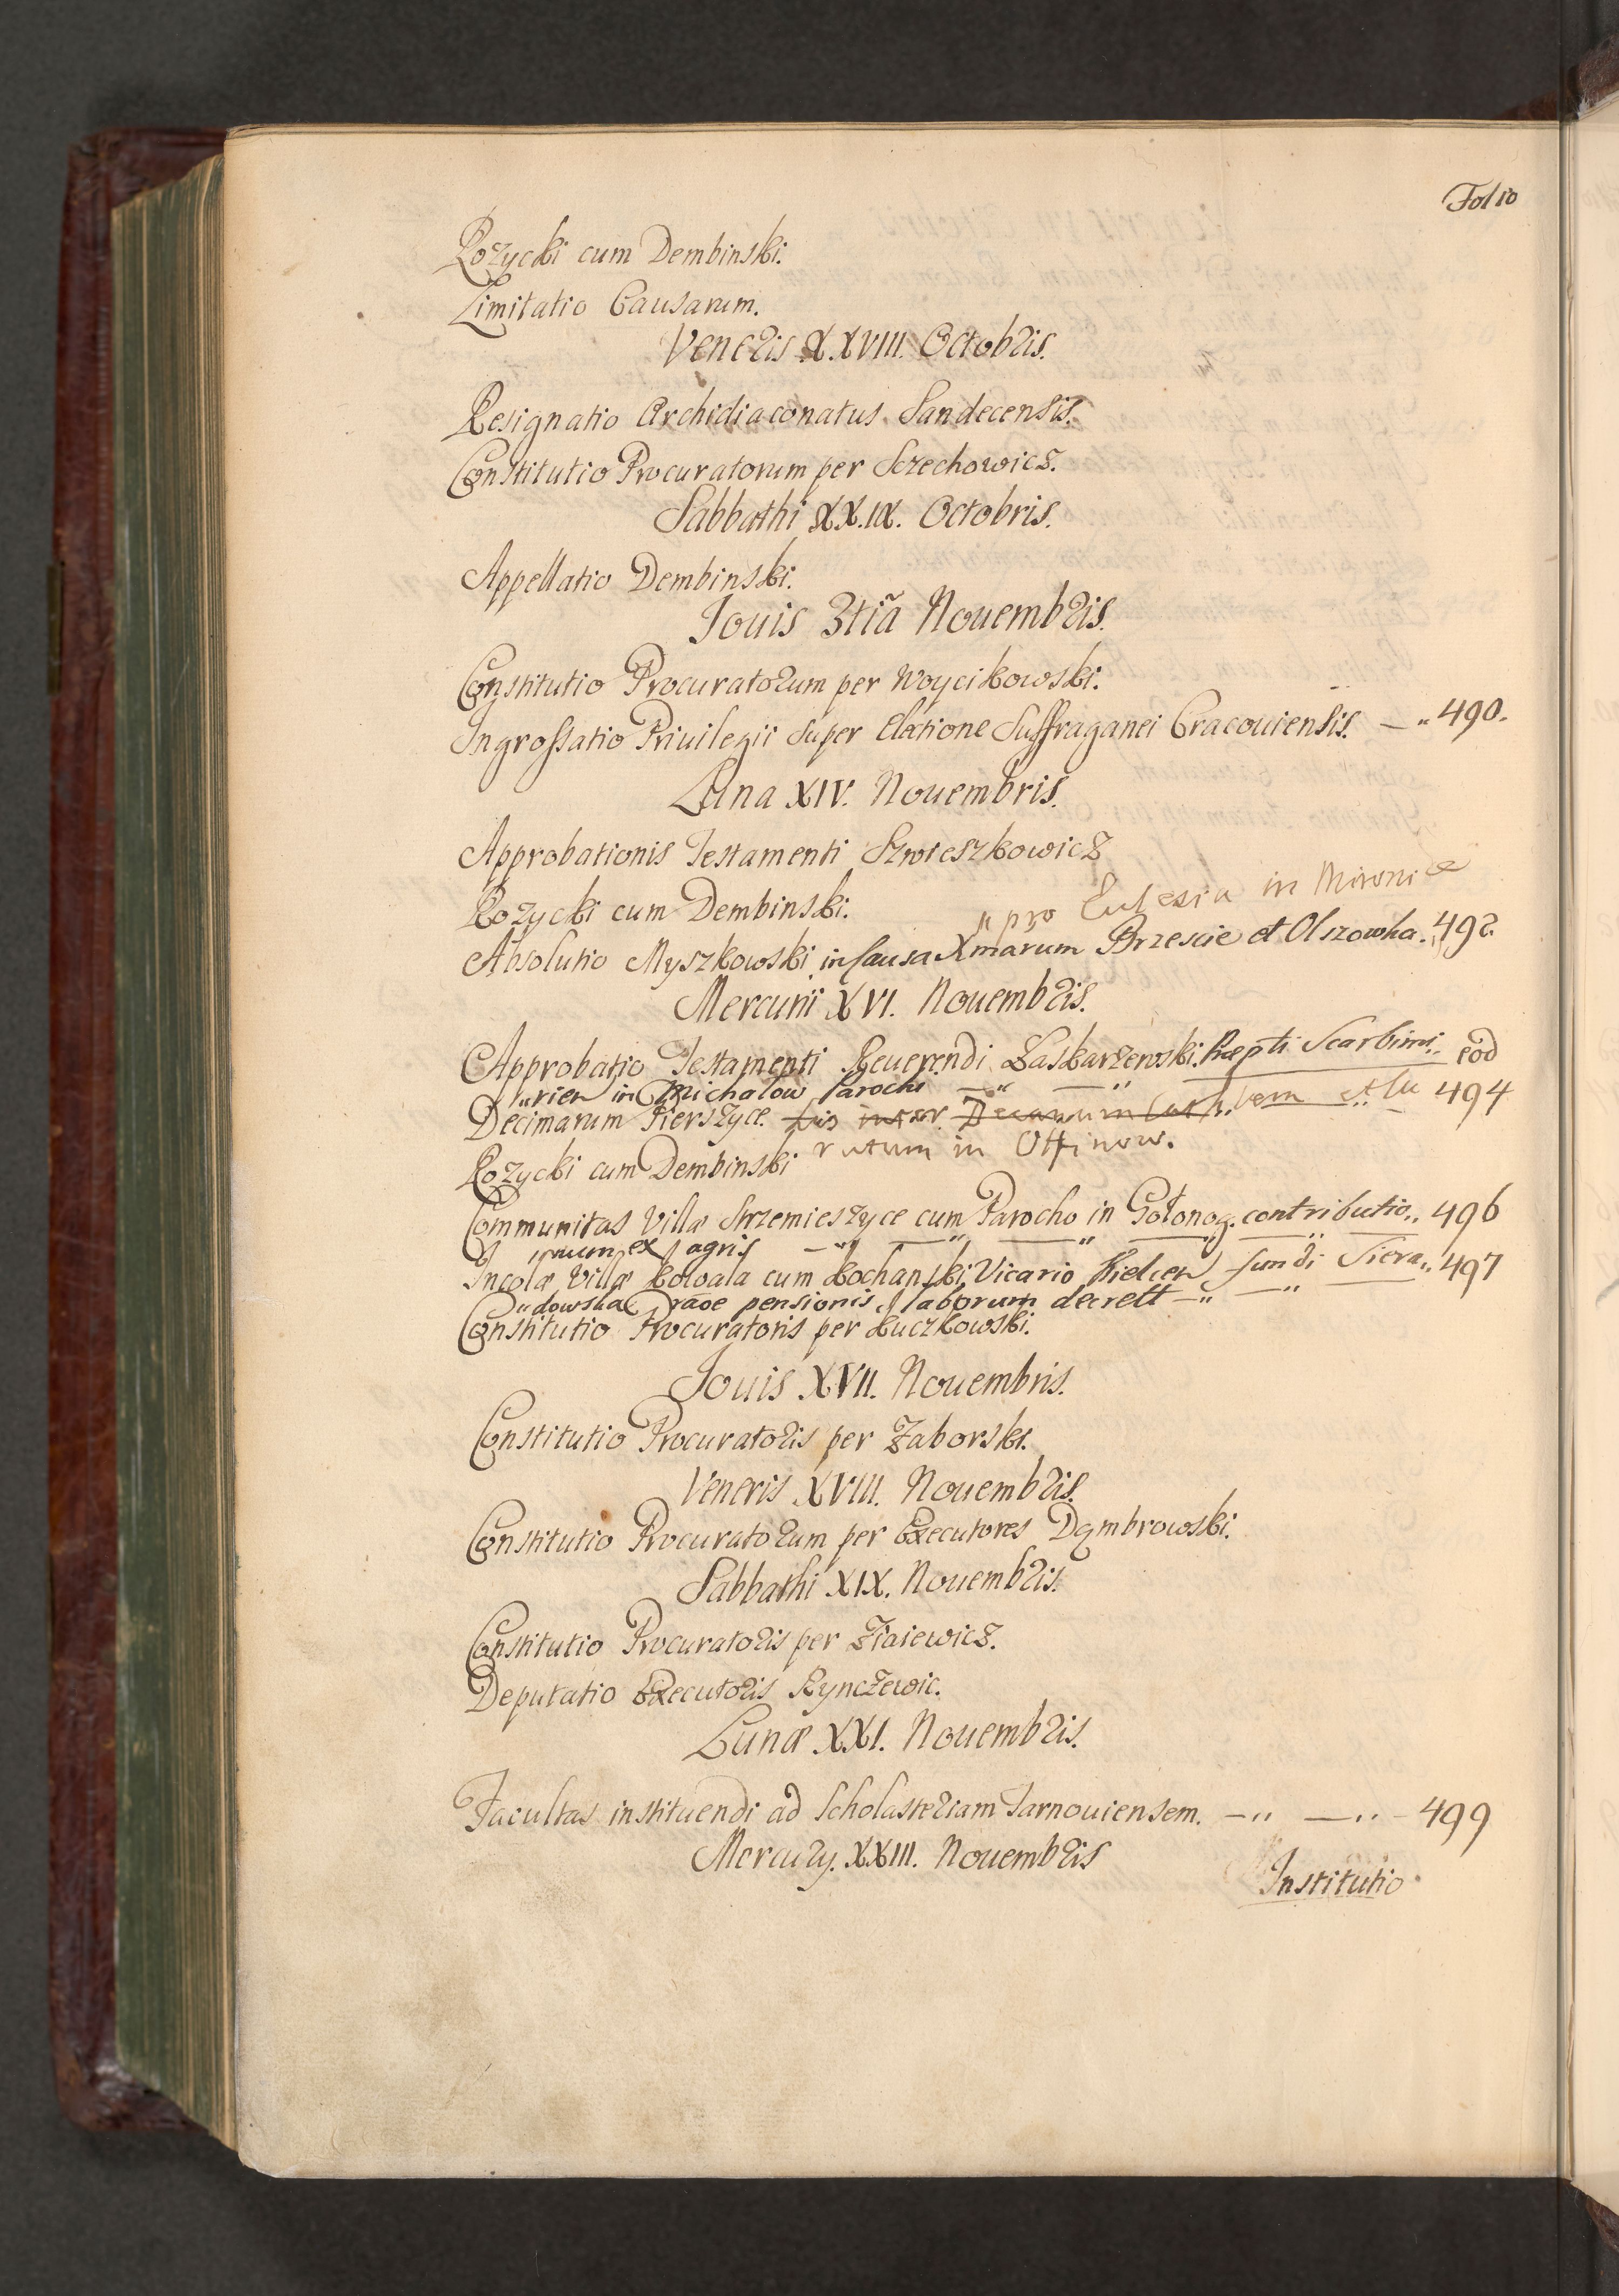 Folio
Rozycki cum Dembinski.
Limitatio Causarum.
Veneris XXVIII. Octobris.
Resignatio Archidiaconatus Sandecensis.
Constitutio Procuratorum per Szechowicz.
Sabbathi XX.IX. Octobris.
Appellatio Dembinski.
Jouis 3tiã Nouembris.
Constitutio Procuratorum per Woycikowski.
Ingrossatio Priuilegii super Elatione Suffraganei Cracouiensis. — „ 490.
Luna XIV. Nouembris.
Approbationis Testamenti Szwieszkowicz
Rozycki cum Dembinski.
„ pro Eulesia in Mironice
Absolutio Myszkowski in Causa Xmarum Brzescie et Olszowka. „ 492.
Mercurii XVI. Nouembris.
Approbatio Testamenti Reuerendi Laskarzewski. Præpti Scarbimi„ eod
„rien in Michalow Parochi — „ — „
Decimarum Pierszyce. Lis inter Decanum 494
Rozycki cum Dembinski ratum in Otfinow.
Communitas Villæ Strzemieszyce cum Parocho in Gołonog. contributio„ 496
„num ex agris — „ — „ — „ — „ —
Incolæ Villæ Kowala cum Kochanski Vicario Kielcen fundi Siera„ 497
„dowska raoe pensionis laborum decrett — „ — „
Constitutio Procuratoris per Łuczkowski.
Jouis XVII. Nouembris.
Constitutio Procuratoris per Zaborski.
Veneris XVIII. Nouembris.
Constitutio Procuratorum per Executores Dąmbrowski.
Sabbathi XIX. Nouembris.
Constitutio Procuratoris per Ziaiewicz.
Deputatio Executoris Rynczewic.
Lunæ XXI. Nouembris.
Facultas instituendi ad Scholasteriam Tarnouiensem. — „ — „ - 499
Mercury. XXIII. Nouembris
Institutio